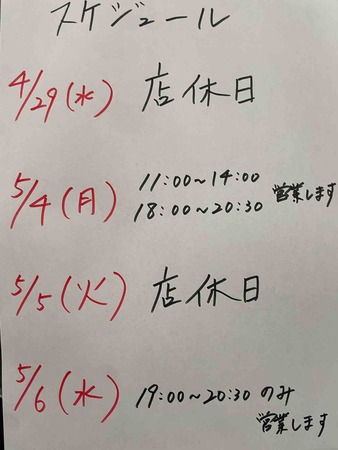 スケジュール
4/29(水) 店休日
5/4(月) 11:00~14:00
18:00~20:30 営業します
5/5(火) 店休日
5/6(水) 19:00~20:30 のみ
営業します